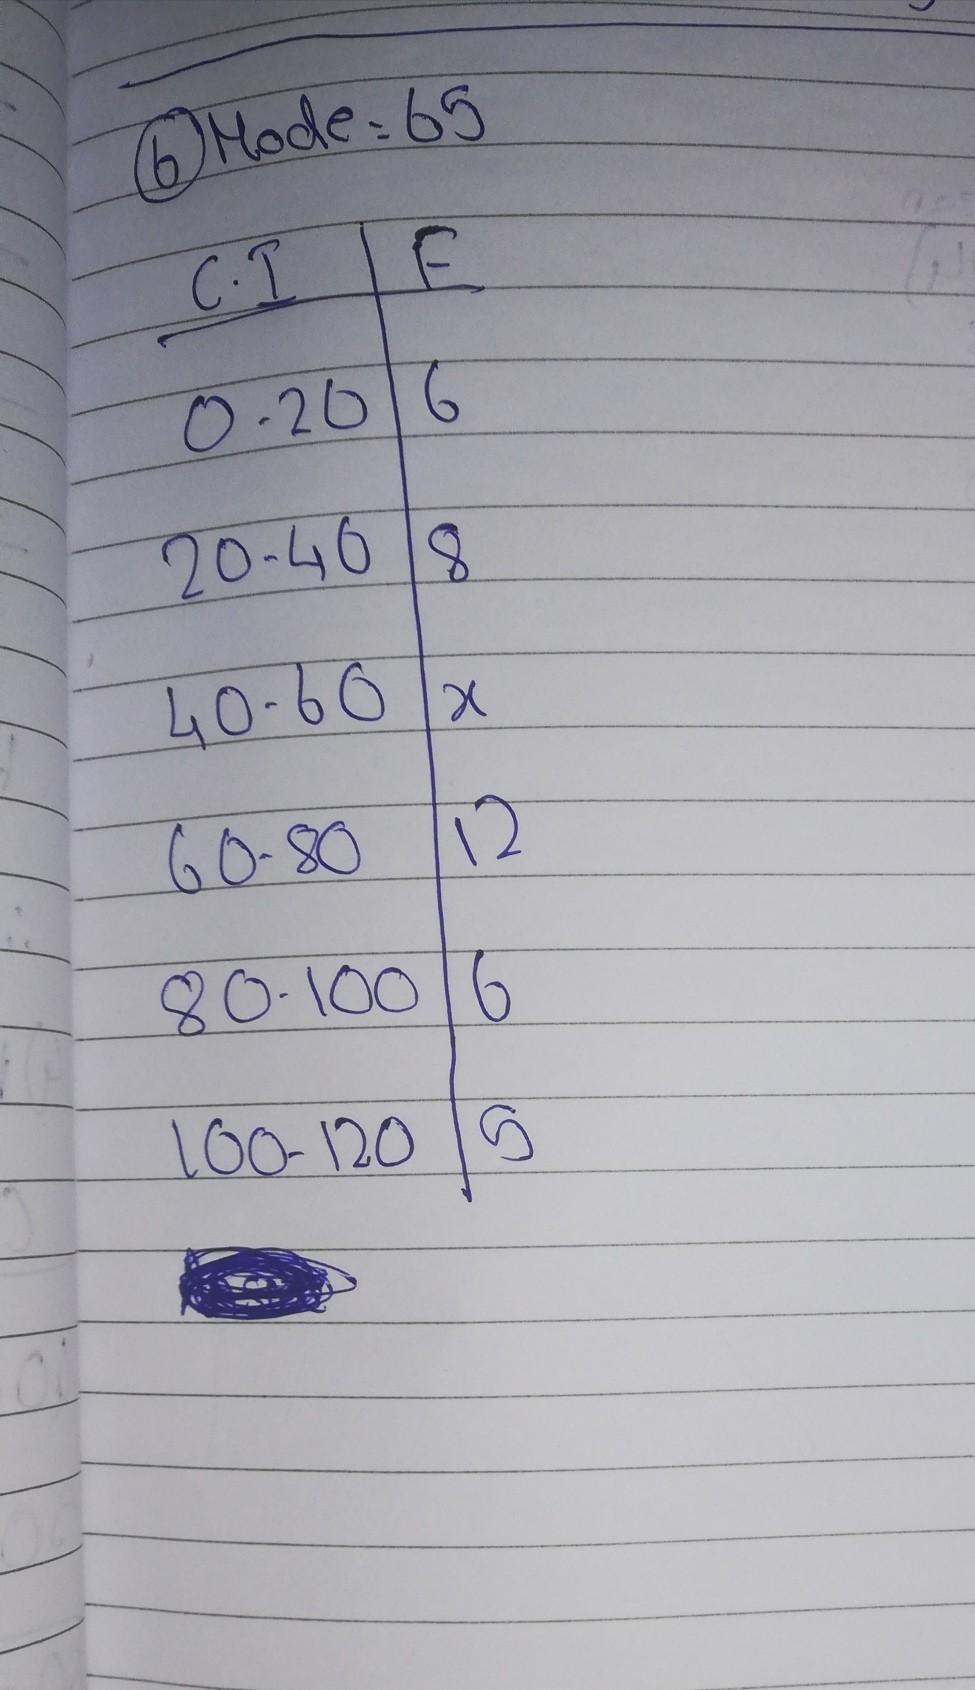 6 Mode = 65
C.I F
0-20 6
20-40 8
40-60 x
60-80 12
80-100 6
100-120 5